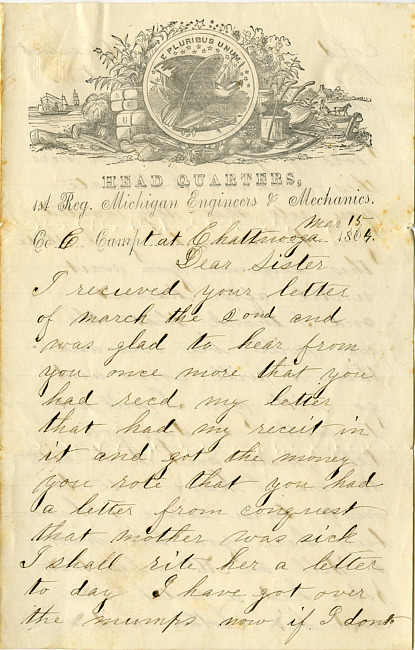 E PLURIBUS UNUM
HEAD QUARTERS,
1st Reg. Michigan Engineers & Mechanics.
Mar 15
Co C Camp at Chattnooga 1864.
Dear Sister
I recieved your letter
of march the 2ond and
was glad to hear from
you once more that you
had recd my letter
that had my receit in
it and got the money
you rote that you had
a letter from conquest
that mother was sick
I shall rite her a letter
to day I have got over
the mumps now if I dont